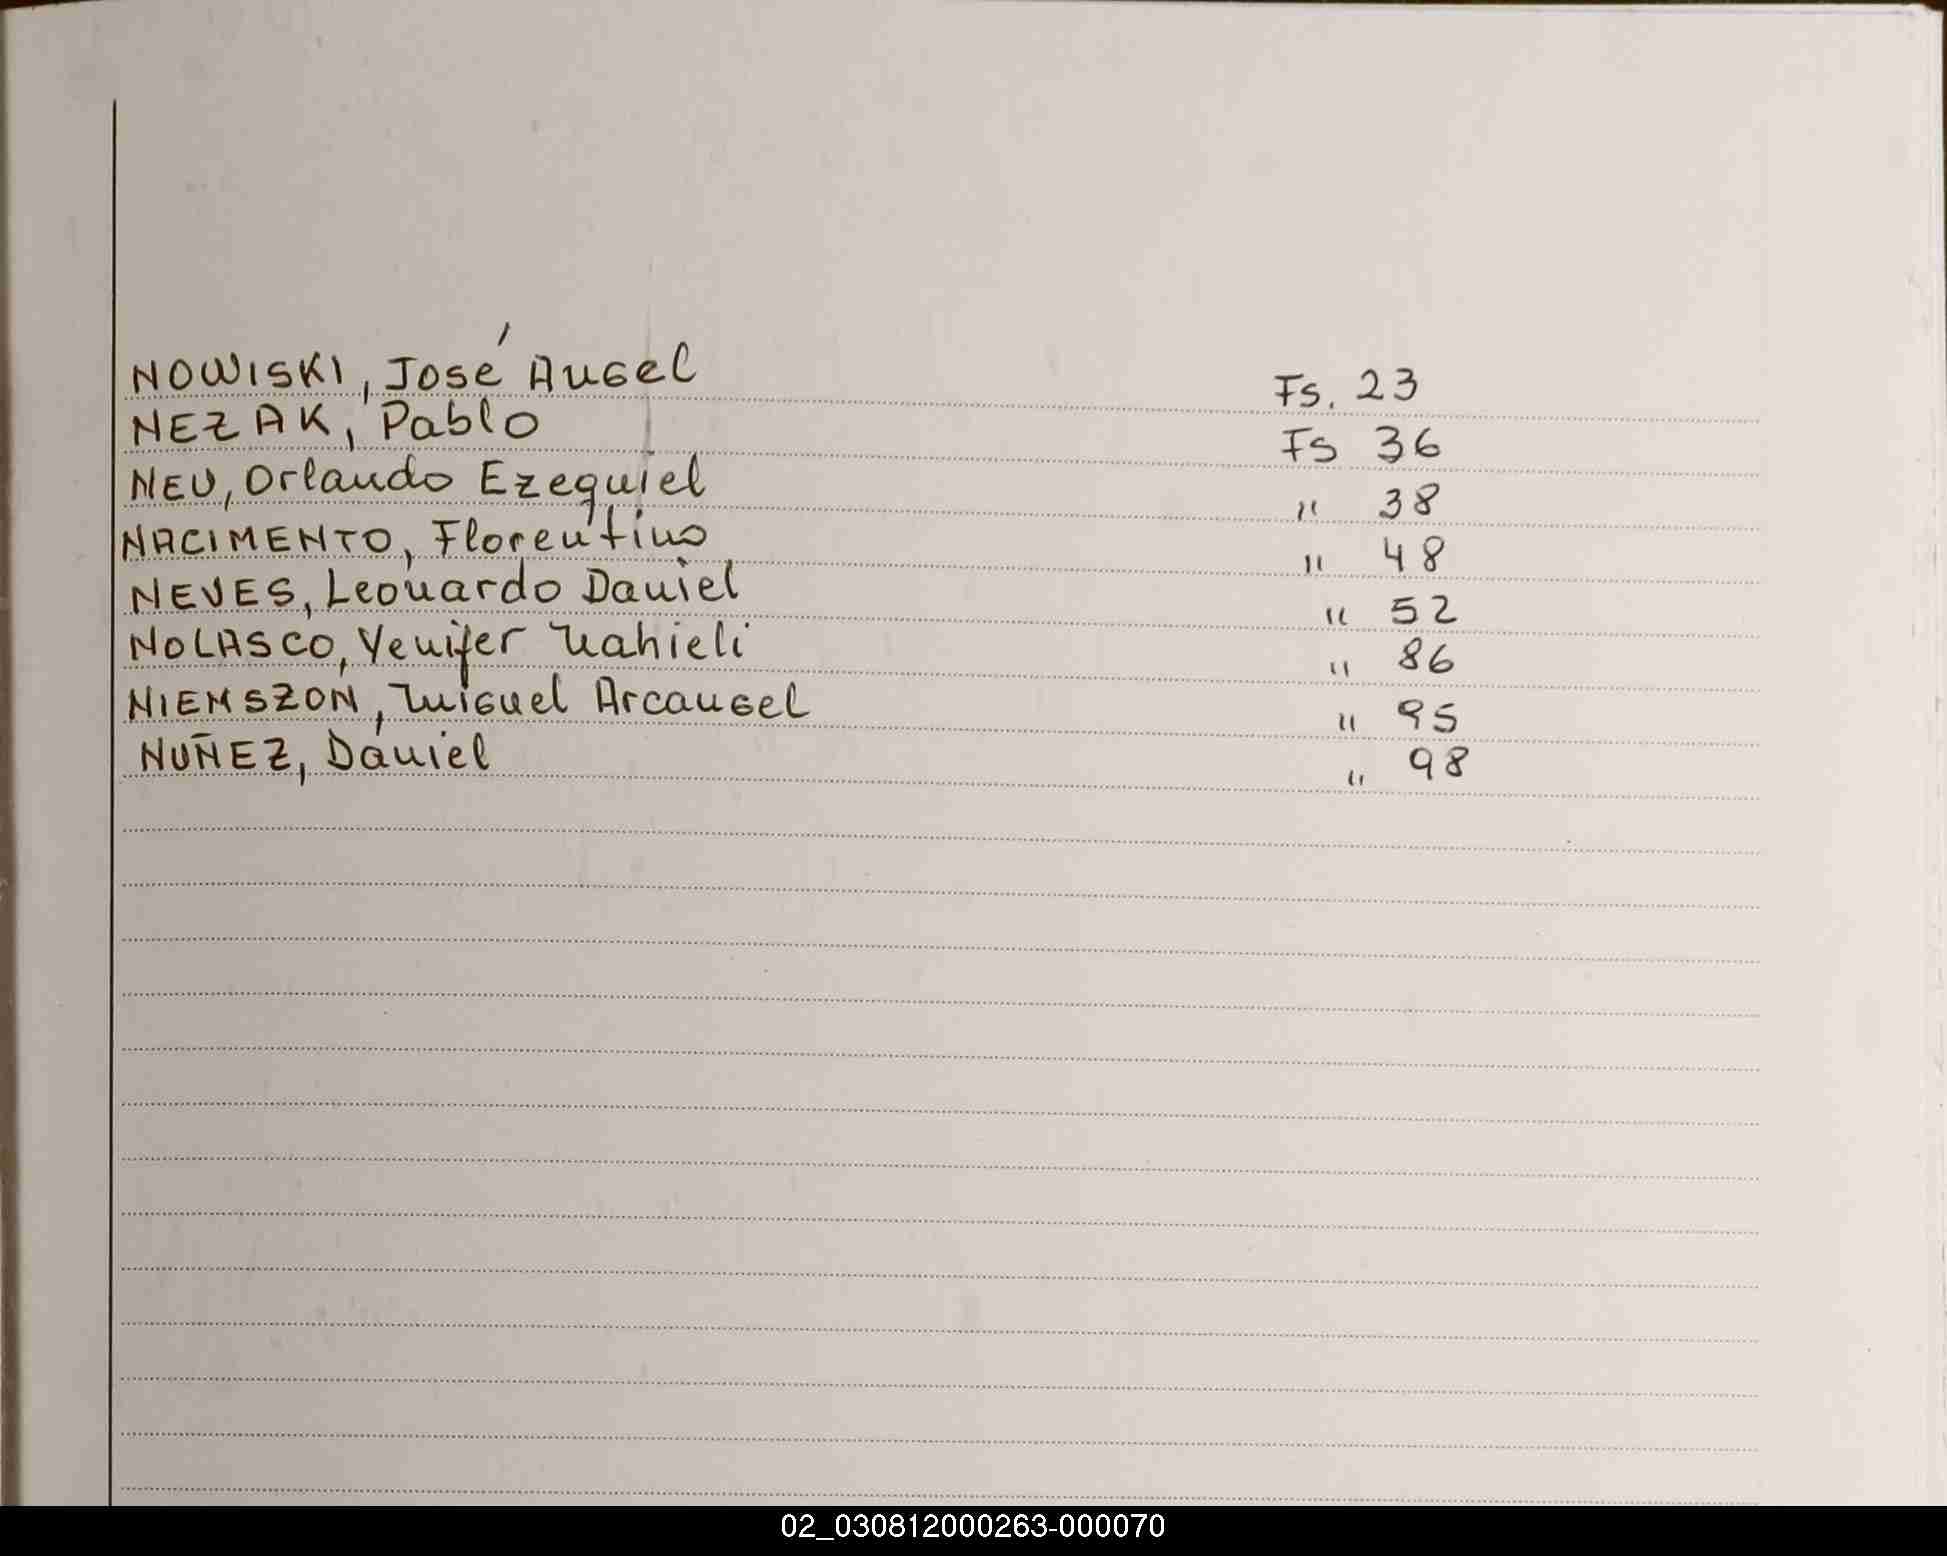 NOWISKI, José Angel Fs. 23
NEZAK, Pablo Fs 36
NEU, Orlando Ezequiel " 38
NACIMENTO, Florentino " 48
NEVES, Leonardo Daniel " 52
NOLASCO, Yenifer Nahieli " 86
NIEMSZON, Miguel Arcangel " 95
NUÑEZ, Daniel " 98
02_030812000263-000070